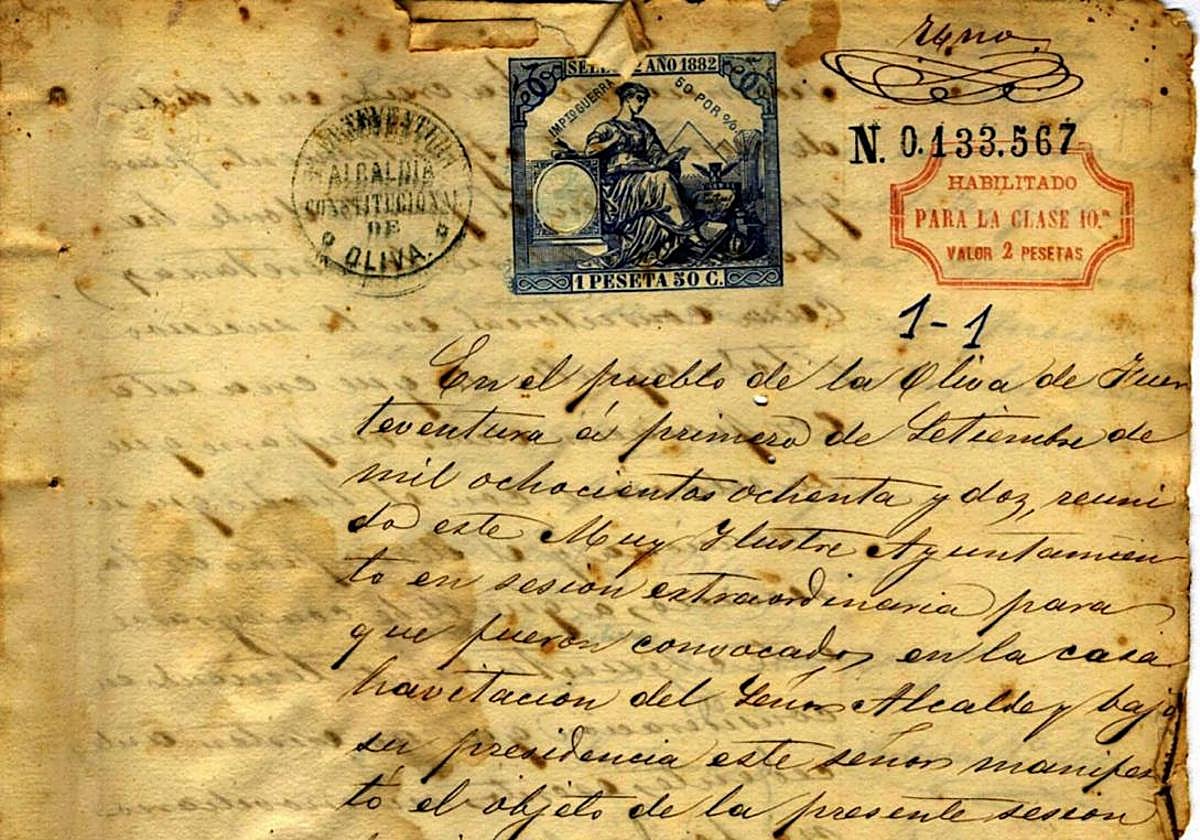 Uno
SELLO 12º AÑO 1882
IMPTO GUERRA
50 POR %
1 PESETA 50 C.
FUERTEVENTURA
ALCALDIA
CONSTITUCIONAL
DE
OLIVA.
N. 0.133.567
HABILITADO
PARA LA CLASE 10.ª
VALOR 2 PESETAS
1-1
En el pueblo de la Oliva de Fuer
teventura á primero de Setiembre de
mil ochocientos ochenta y doz, reuni
do este Muy Ilustre Ayuntamien-
to en sesion extraordinaria para
que fueron convocados en la casa
havitacion del Señor Alcalde y bajo
su presidencia este señor manifes
tó el objeto de la presente sesion